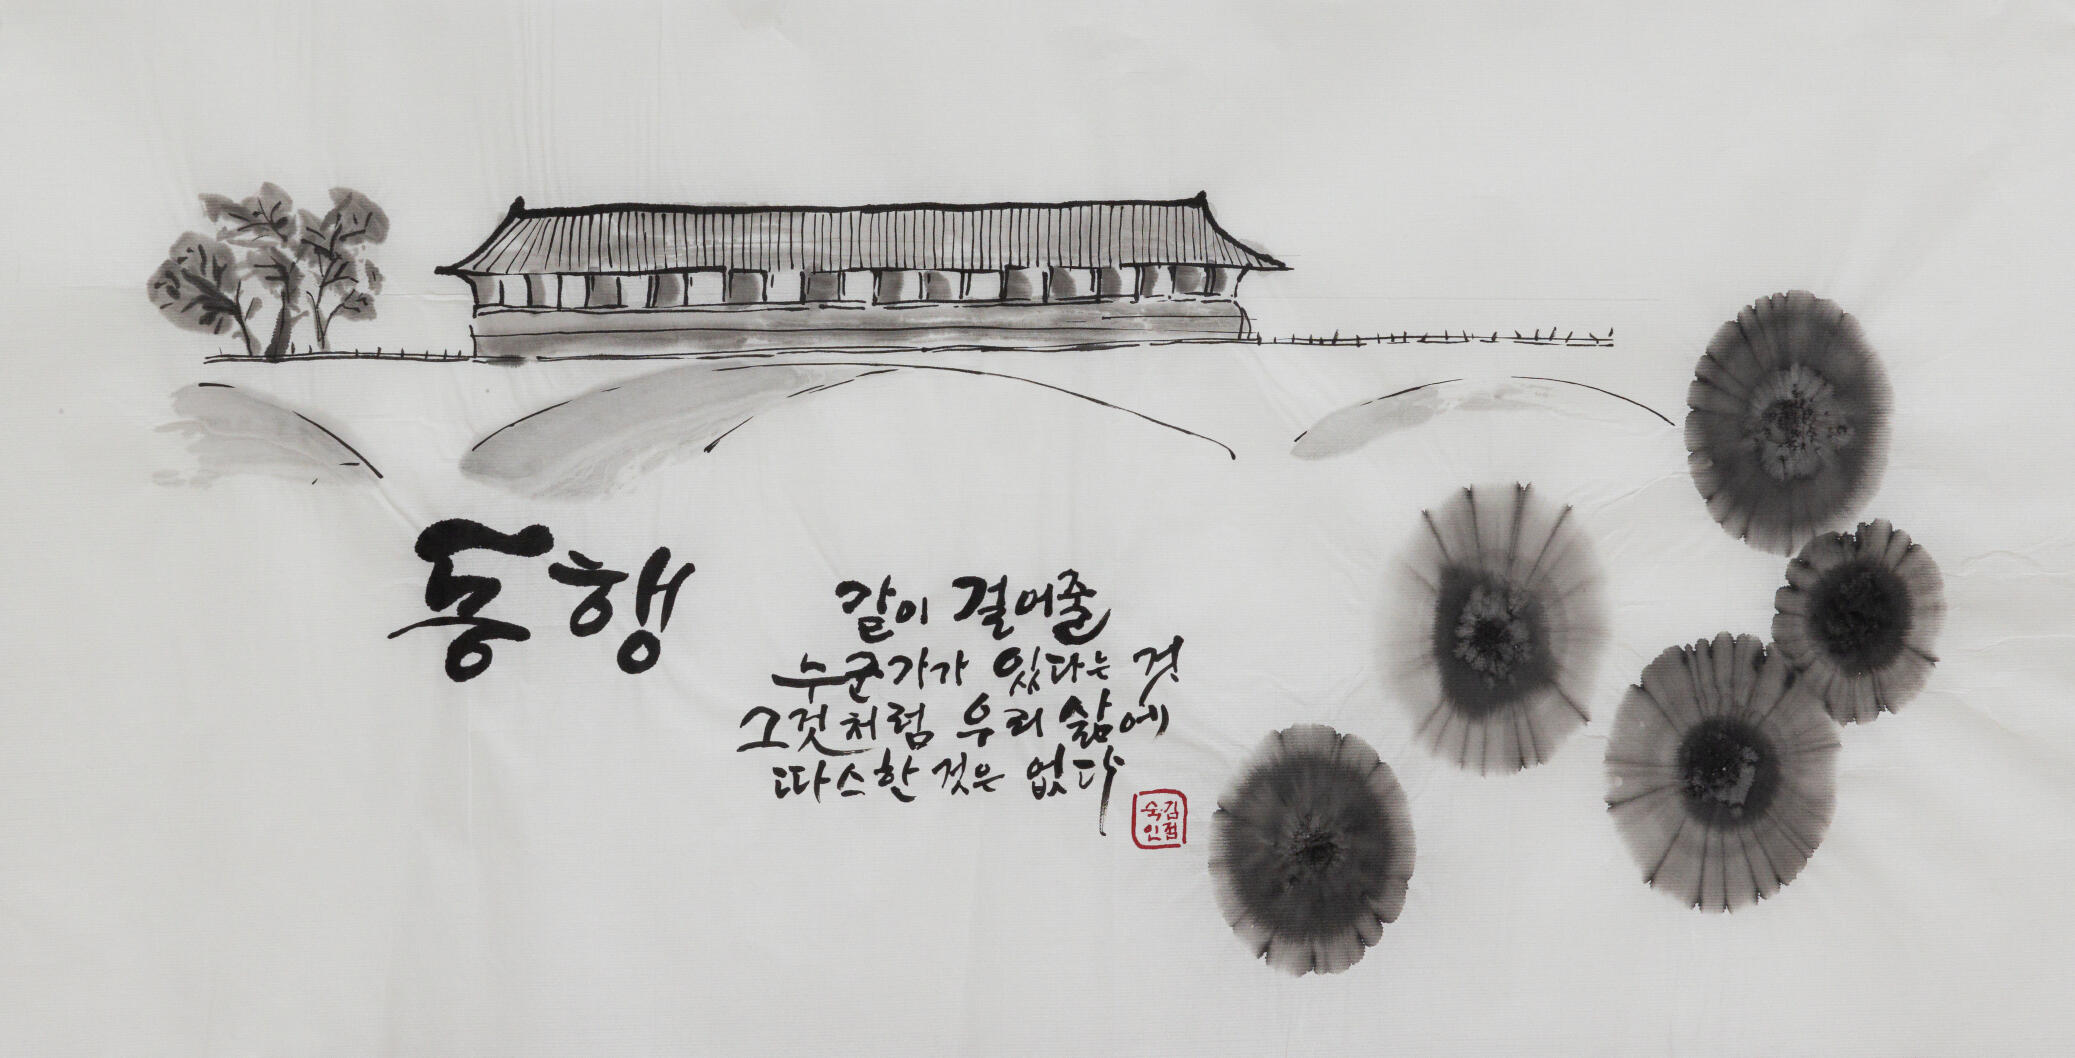 동행
같이 걸어줄
누군가가 있다는 것
그것처럼 우리 삶에
따스한 것은 없다
김점
숙인